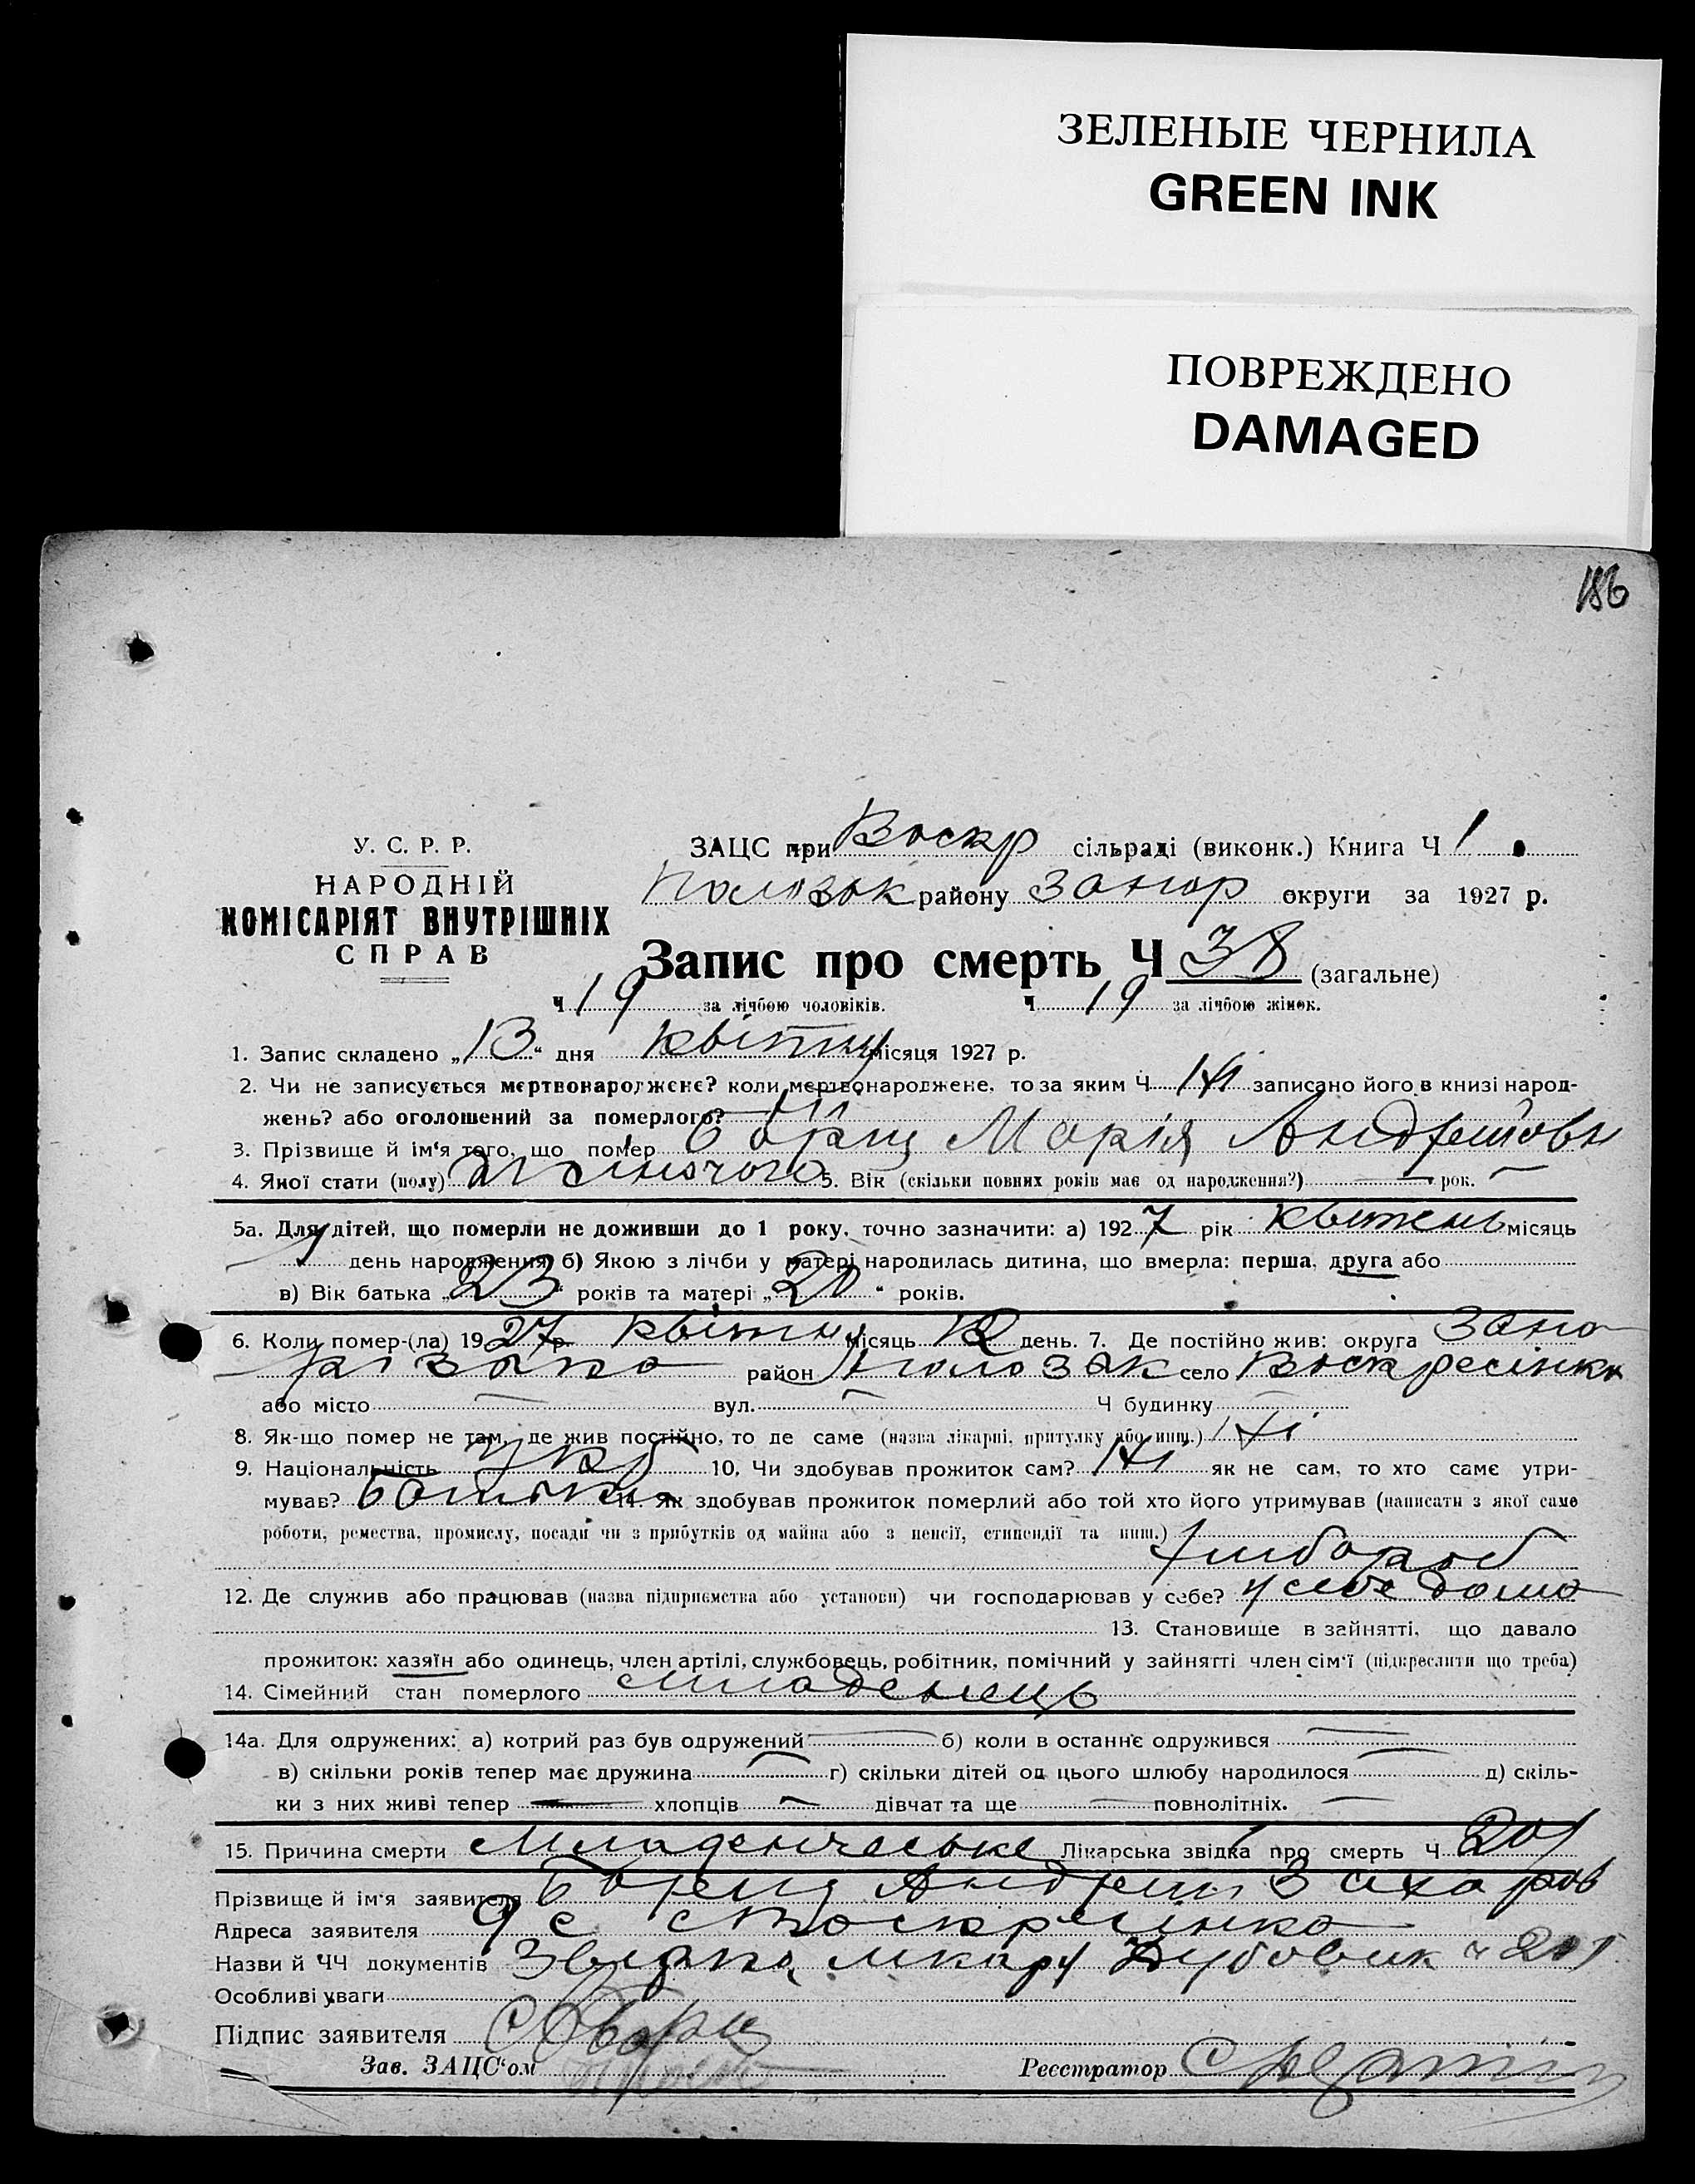 ЗЕЛЕНЫЕ ЧЕРНИЛА
GREEN INK
ПОВРЕЖДЕНО
DAMAGED
186
У. С. Р. Р.
НАРОДНІЙ
КОМІСАРІЯТ ВНУТРІШНІХ
СПРАВ
ЗАЦС при Воскр сільраді (виконк.) Книга Ч 1
району Запор округи за 1927 р.
Запис про смерть Ч 38 (загальне)
Ч 19 за лічбою чоловіків. Ч 19 за лічбою жінок.
1. Запис складено „13“ дня квітня місяця 1927 р.
2. Чи не записується мертвонароджене? коли мертвонароджене, то за яким Ч Ні записано його в книзі народ-
жень? або оголошений за померлого? Ні
3. Прізвище й ім'я того, що помер Борщ Марія
4. Якої стати (полу) жіночого 5. Вік (скільки повних років має од народження?) — рок. —
5а. Для дітей, що померли не доживши до 1 року, точно зазначити: а) 1927 рік квітень місяць
1 день народження б) Якою з лічби у матері народилась дитина, що вмерла: перша, друга або
в) Вік батька „23“ років та матері „20“ років.
6. Коли помер-(ла) 1927 р. квітня місяць 12 день. 7. Де постійно жив: округа Запо
різька район село Воскресінка
або місто — вул. — Ч будинку —
8. Як-що помер не там, де жив постійно, то де саме (назва лікарні, притулку або инш.) Ні
9. Національність Укр 10. Чи здобував прожиток сам? Ні як не сам, то хто саме утри-
мував? Батько 11. Як здобував прожиток померлий або той хто його утримував (написати з якої саме
роботи, ремества, промислу, посади чи з прибутків од майна або з пенсії, стипендії та инш.)
Хлібороб
12. Де служив або працював (назва підприємства або установи) чи господарював у себе? у себе дома
13. Становище в зайнятті, що давало
прожиток: хазяїн або одинець, член артілі, службовець, робітник, помічний у зайнятті член сім'ї (підкреслити що треба)
14. Сімейний стан померлого младенець
14а. Для одружених: а) котрий раз був одружений — б) коли в останнє одружився —
в) скільки років тепер має дружина — г) скільки дітей од цього шлюбу народилося — д) скіль-
ки з них живі тепер — хлопців — дівчат та ще — повнолітніх. —
15. Причина смерти Младенческе Лікарська звідка про смерть Ч 201
Прізвище й ім'я заявителя Борщ Андрій Захаров
Адреса заявителя с Воскресінка
Назви й ЧЧ документів лікаря Дубовик ч 201
Особливі уваги
Підпис заявителя
Зав. ЗАЦС'ом Реєстратор